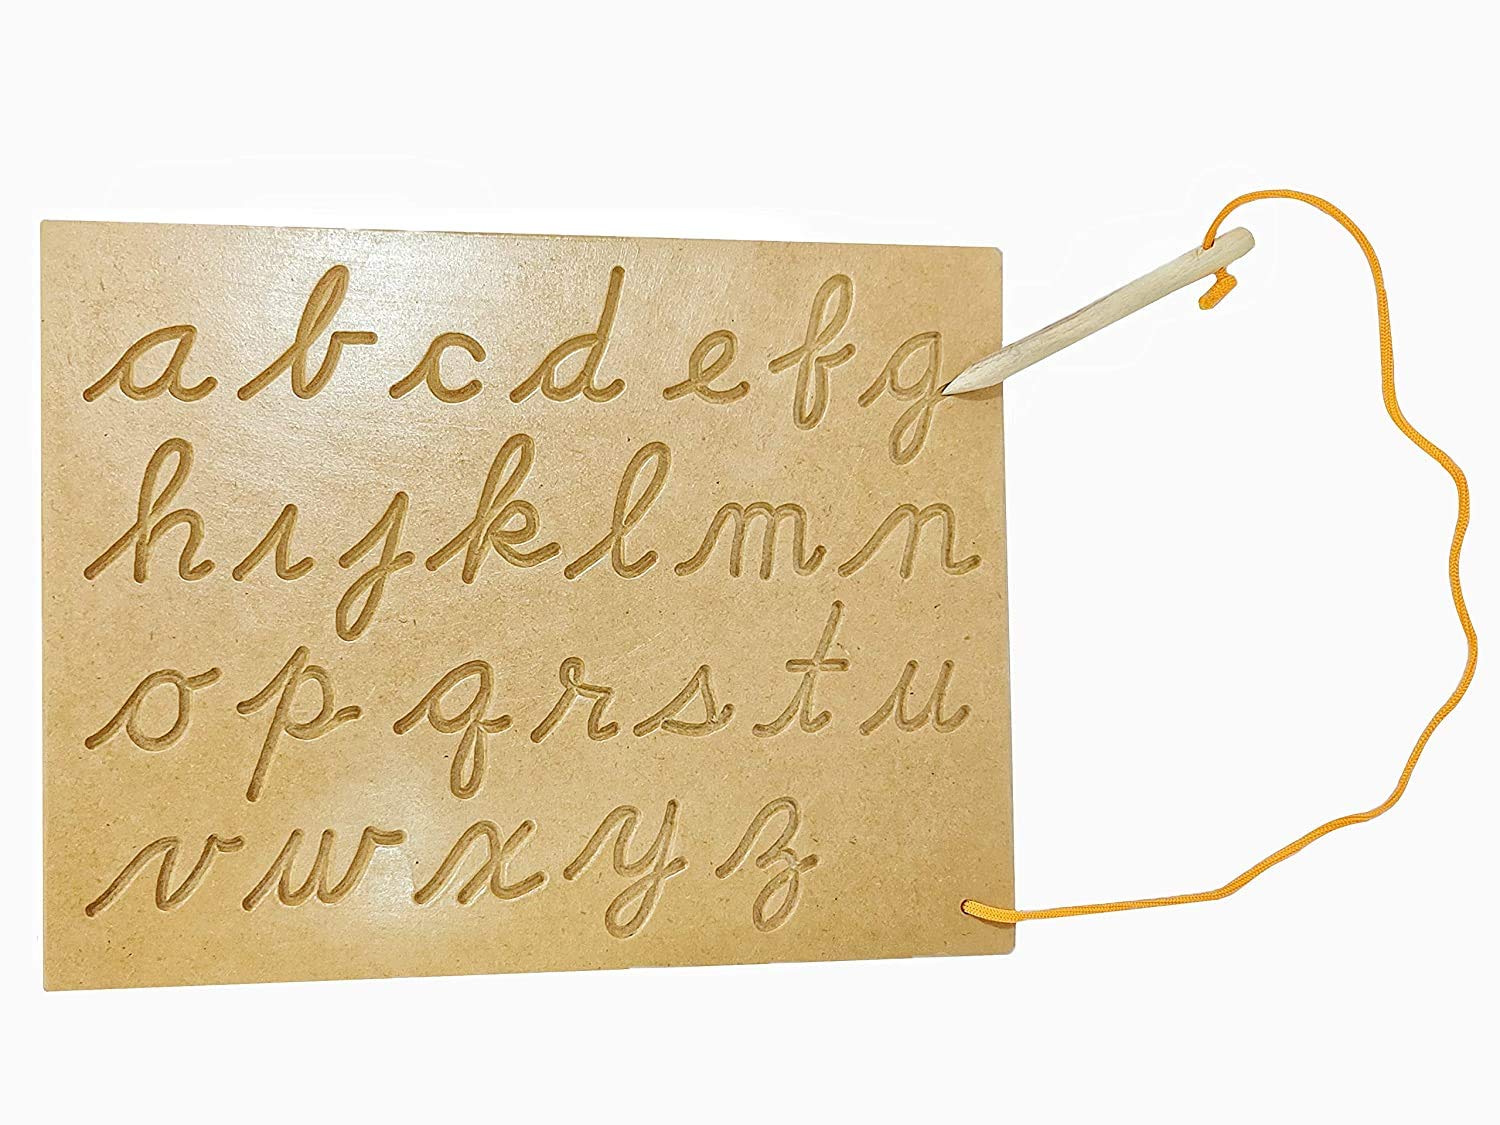 a b c d e f g
h ı ȷ k l m n
o p q r s t u
v w x y z